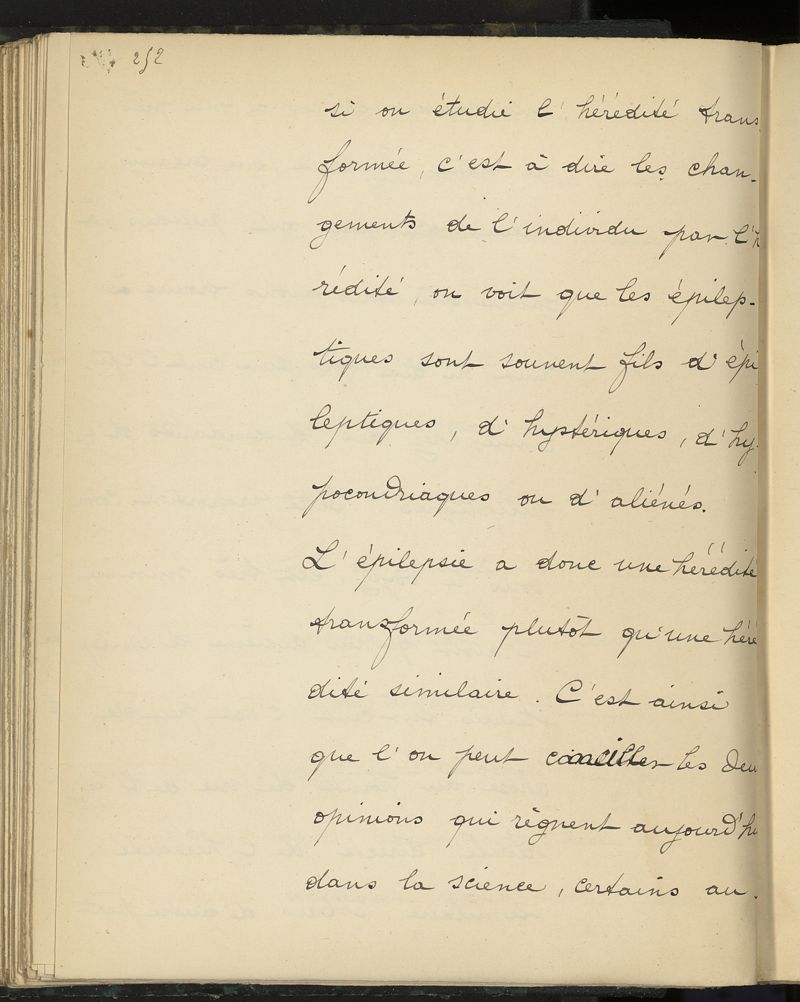 252
si on étudie l'hérédité trans
formée, c'est à dire les chan-
gements de l'individu par l'h
rédité, on voit que les épilep-
tiques sont souvent fils d'épi
leptiques, d'hystériques, d'hy
pocondriaques ou d'aliénés.
L'épilepsie a donc une hérédité
transformée plutôt qu'une héré
dité similaire. C'est ainsi
que l'on peut concilier les deu
opinions qui règnent aujourd'hu
dans la science, certains au-